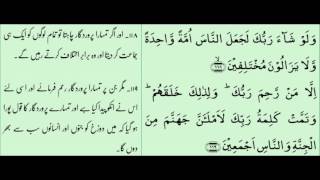 وَلَوْ شَآءَ رَبُّكَ لَجَعَلَ النَّاسَ اُمَّةً وَّاحِدَةً
وَّلَا يَزَالُوْنَ مُخْتَلِفِيْنَ ۙ﴿۱۱۸﴾
اِلَّا مَنْ رَّحِمَ رَبُّكَ ؕ وَلِذٰلِكَ خَلَقَهُمْ ؕ
وَتَمَّتْ كَلِمَةُ رَبِّكَ لَاَمْلَـَٔنَّ جَهَنَّمَ مِنَ
الْجِنَّةِ وَالنَّاسِ اَجْمَعِيْنَ ﴿۱۱۹﴾
۱۱۸۔ اور اگر تمہارا پروردگار چاہتا تو تمام لوگوں کو ایک ہی
جماعت کر دیتا اور وہ برابر اختلاف کرتے رہیں گے۔
۱۱۹۔ مگر جن پر تمہارا پروردگار رحم فرمائے اور اسی لئے
اس نے انکو پیدا کیا ہے اور تمہارے پروردگار کا قول پورا
ہو گیا کہ میں دوزخ کو جنوں اور انسانوں سب سے بھر
دوں گا۔